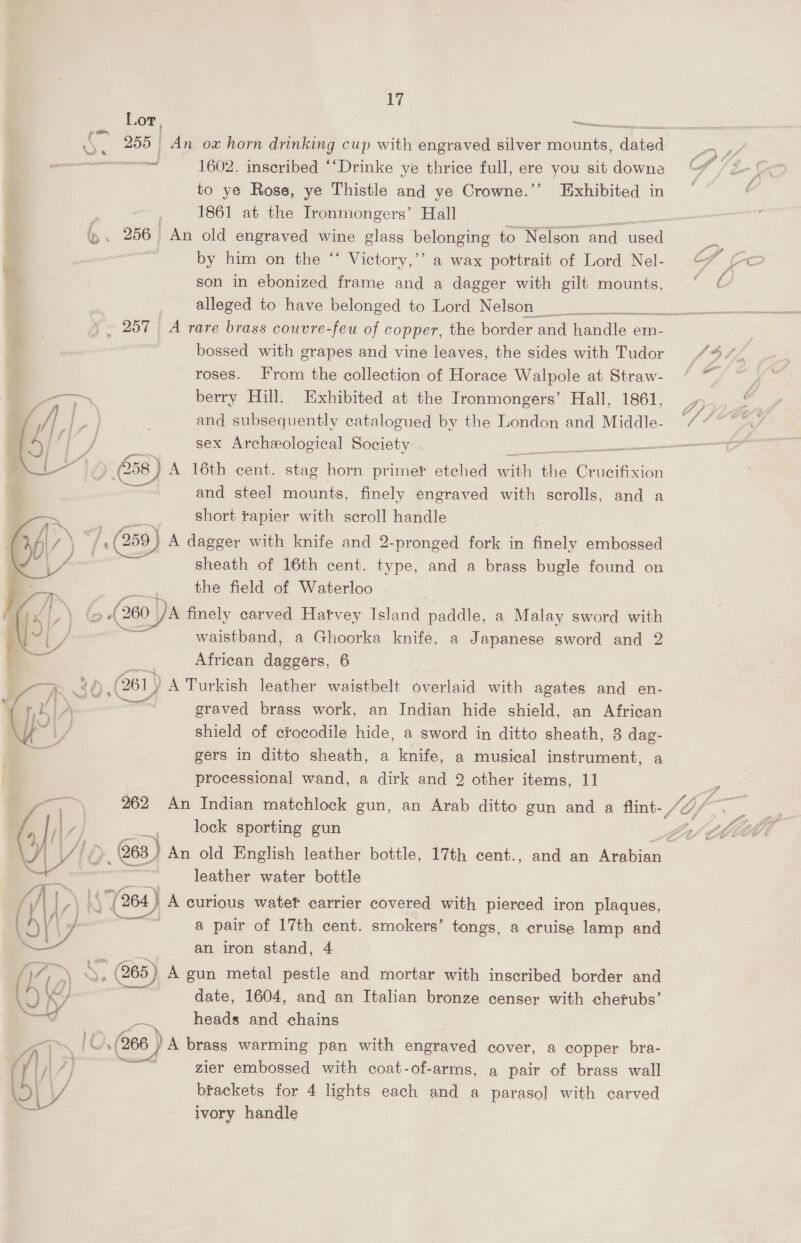 17
Lot
255 An ox horn drinking cup with engraved silver mounts, dated
1602. inscribed “Drinke ye thrice full, ere you sit downe
to ye Rose, ye Thistle and ye Crowne.” Exhibited in
1861 at the Ironmongers’ Hall
256 An old engraved wine glass belonging to Nelson and used
by him on the “ Victory,” a wax portrait of Lord Nel-
son in ebonized frame and a dagger with gilt mounts,
alleged to have belonged to Lord Nelson
257 A rare brass couvre-feu of copper, the border and handle em-
bossed with grapes and vine leaves, the sides with Tudor
roses. From the collection of Horace Walpole at Straw-
berry Hill. Exhibited at the Ironmongers’ Hall, 1861,
and subsequently catalogued by the London and Middle-
sex Archæological Society
258 A 16th cent. stag horn primer etched with the Crucifixion
and steel mounts, finely engraved with scrolls, and a
short rapier with scroll handle
259 A dagger with knife and 2-pronged fork in finely embossed
sheath of 16th cent. type, and a brass bugle found on
the field of Waterloo
260 A finely carved Harvey Island paddle, a Malay sword with
waistband, a Ghoorka knife, a Japanese sword and 2
African daggers, 6
261 A Turkish leather waistbelt overlaid with agates and en-
graved brass work, an Indian hide shield, an African
shield of crocodile hide, a sword in ditto sheath, 3 dag-
gers in ditto sheath, a knife, a musical instrument, a
processional wand, a dirk and 2 other items, 11
262 An Indian matchlock gun, an Arab ditto gun and a flint-
lock sporting gun
263 An old English leather bottle, 17th cent., and an Arabian
leather water bottle
264 A curious water carrier covered with pierced iron plaques,
a pair of 17th cent. smokers’ tongs, a cruise lamp and
an iron stand, 4
265 A gun metal pestle and mortar with inscribed border and
date, 1604, and an Italian bronze censer with cherubs’
heads and chains
266 A brass warming pan with engraved cover, a copper bra-
zier embossed with coat-of-arms, a pair of brass wall
brackets for 4 lights each and a parasol with carved
ivory handle